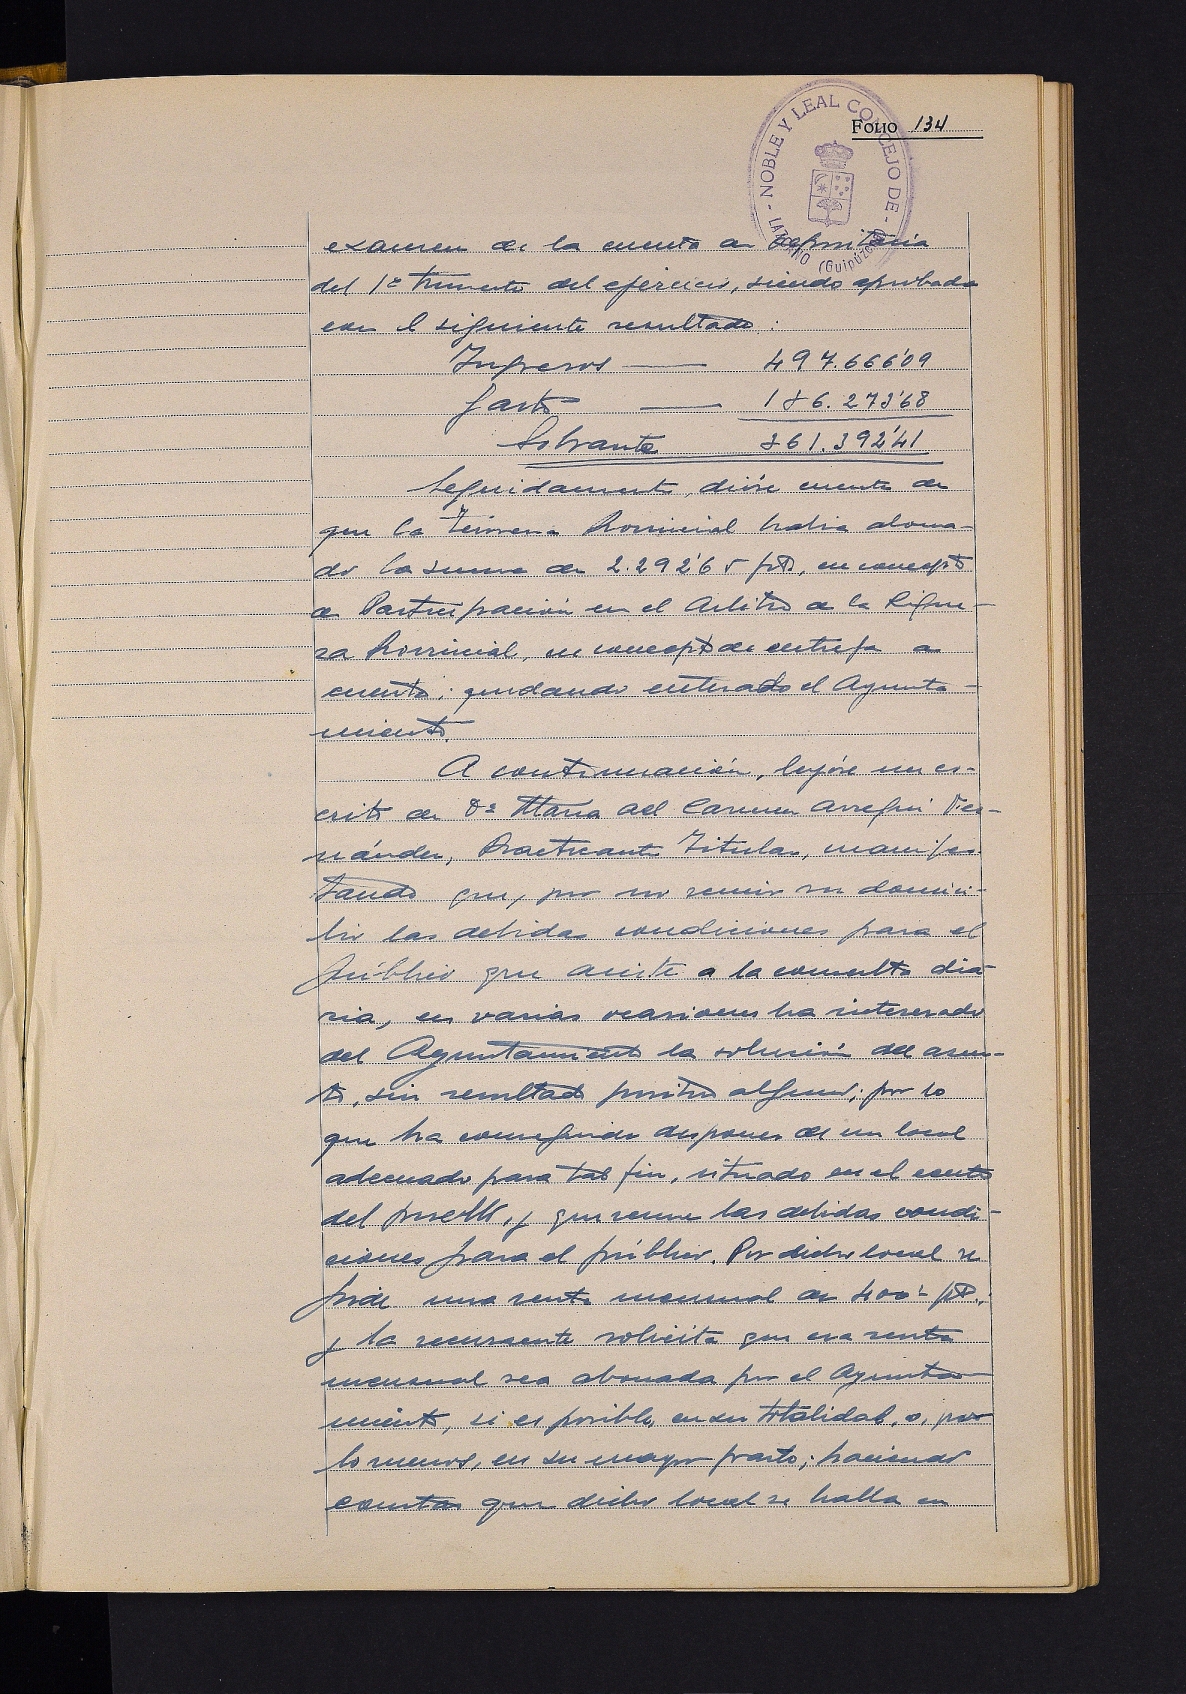 FOLIO 134
- NOBLE Y LEAL CONCEJO DE -
(Guipúzcoa)
examen de la cuenta de Depositaria
del 1er trimestre del ejercicio, siendo aprobada
con el siguiente resultado:
Ingresos — 497.666'09
Gastos — 186.273'68
Sobrante 361.392'41
Seguidamente, dióse cuenta de
que la Tesorería Provincial había abona-
do la suma de 2.292'65 pts, en concepto
de Participación en el Arbitrio de la Rique-
za Provincial, en concepto de entrega a
cuenta; quedando enterado el Ayunta-
miento.
A continuación, leyóse un es-
crito de Dª María del Carmen Arregui Fer-
nández, Practicante Titular, manifes-
tando que, por no reunir su domici-
lio las debidas condiciones para el
público que asiste a la consulta dia-
ria, en varias ocasiones ha interesado
del Ayuntamiento la solución del asun-
to, sin resultado positivo alguno; por lo
que ha conseguido disponer de un local
adecuado para tal fin, situado en el centro
del pueblo, y que reune las debidas condi-
ciones para el público. Por dicho local se
pide una renta mensual de 400'- pts.;
y la recurrente solicita que esa renta
mensual sea abonada por el Ayunta-
miento, si es posible, en su totalidad, o, por
lo menos, en su mayor parte; haciendo
constar que dicho local se halla en